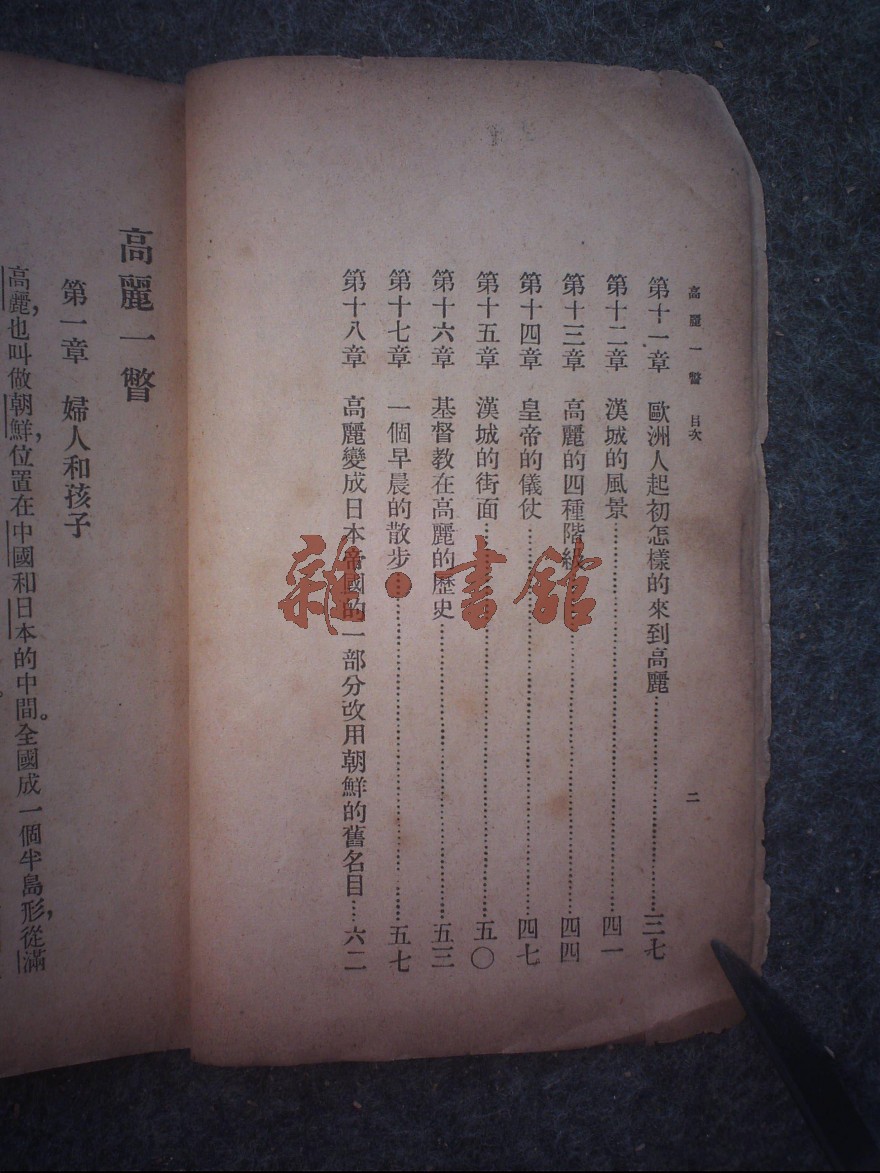 高麗一瞥 目次 二
第十一章 歐洲人起初怎樣的來到高麗……三七
第十二章 漢城的風景……四一
第十三章 高麗的四種階級……四四
第十四章 皇帝的儀仗……四七
第十五章 漢城的街面……五〇
第十六章 基督教在高麗的歷史……五三
第十七章 一個早晨的散步……五七
第十八章 高麗變成日本帝國的一部分改用朝鮮的舊名目…六二
高麗一瞥
第一章 婦人和孩子
高麗,也叫做朝鮮,位置在中國和日本的中間。全國成一個半島形,從滿
雜·書館